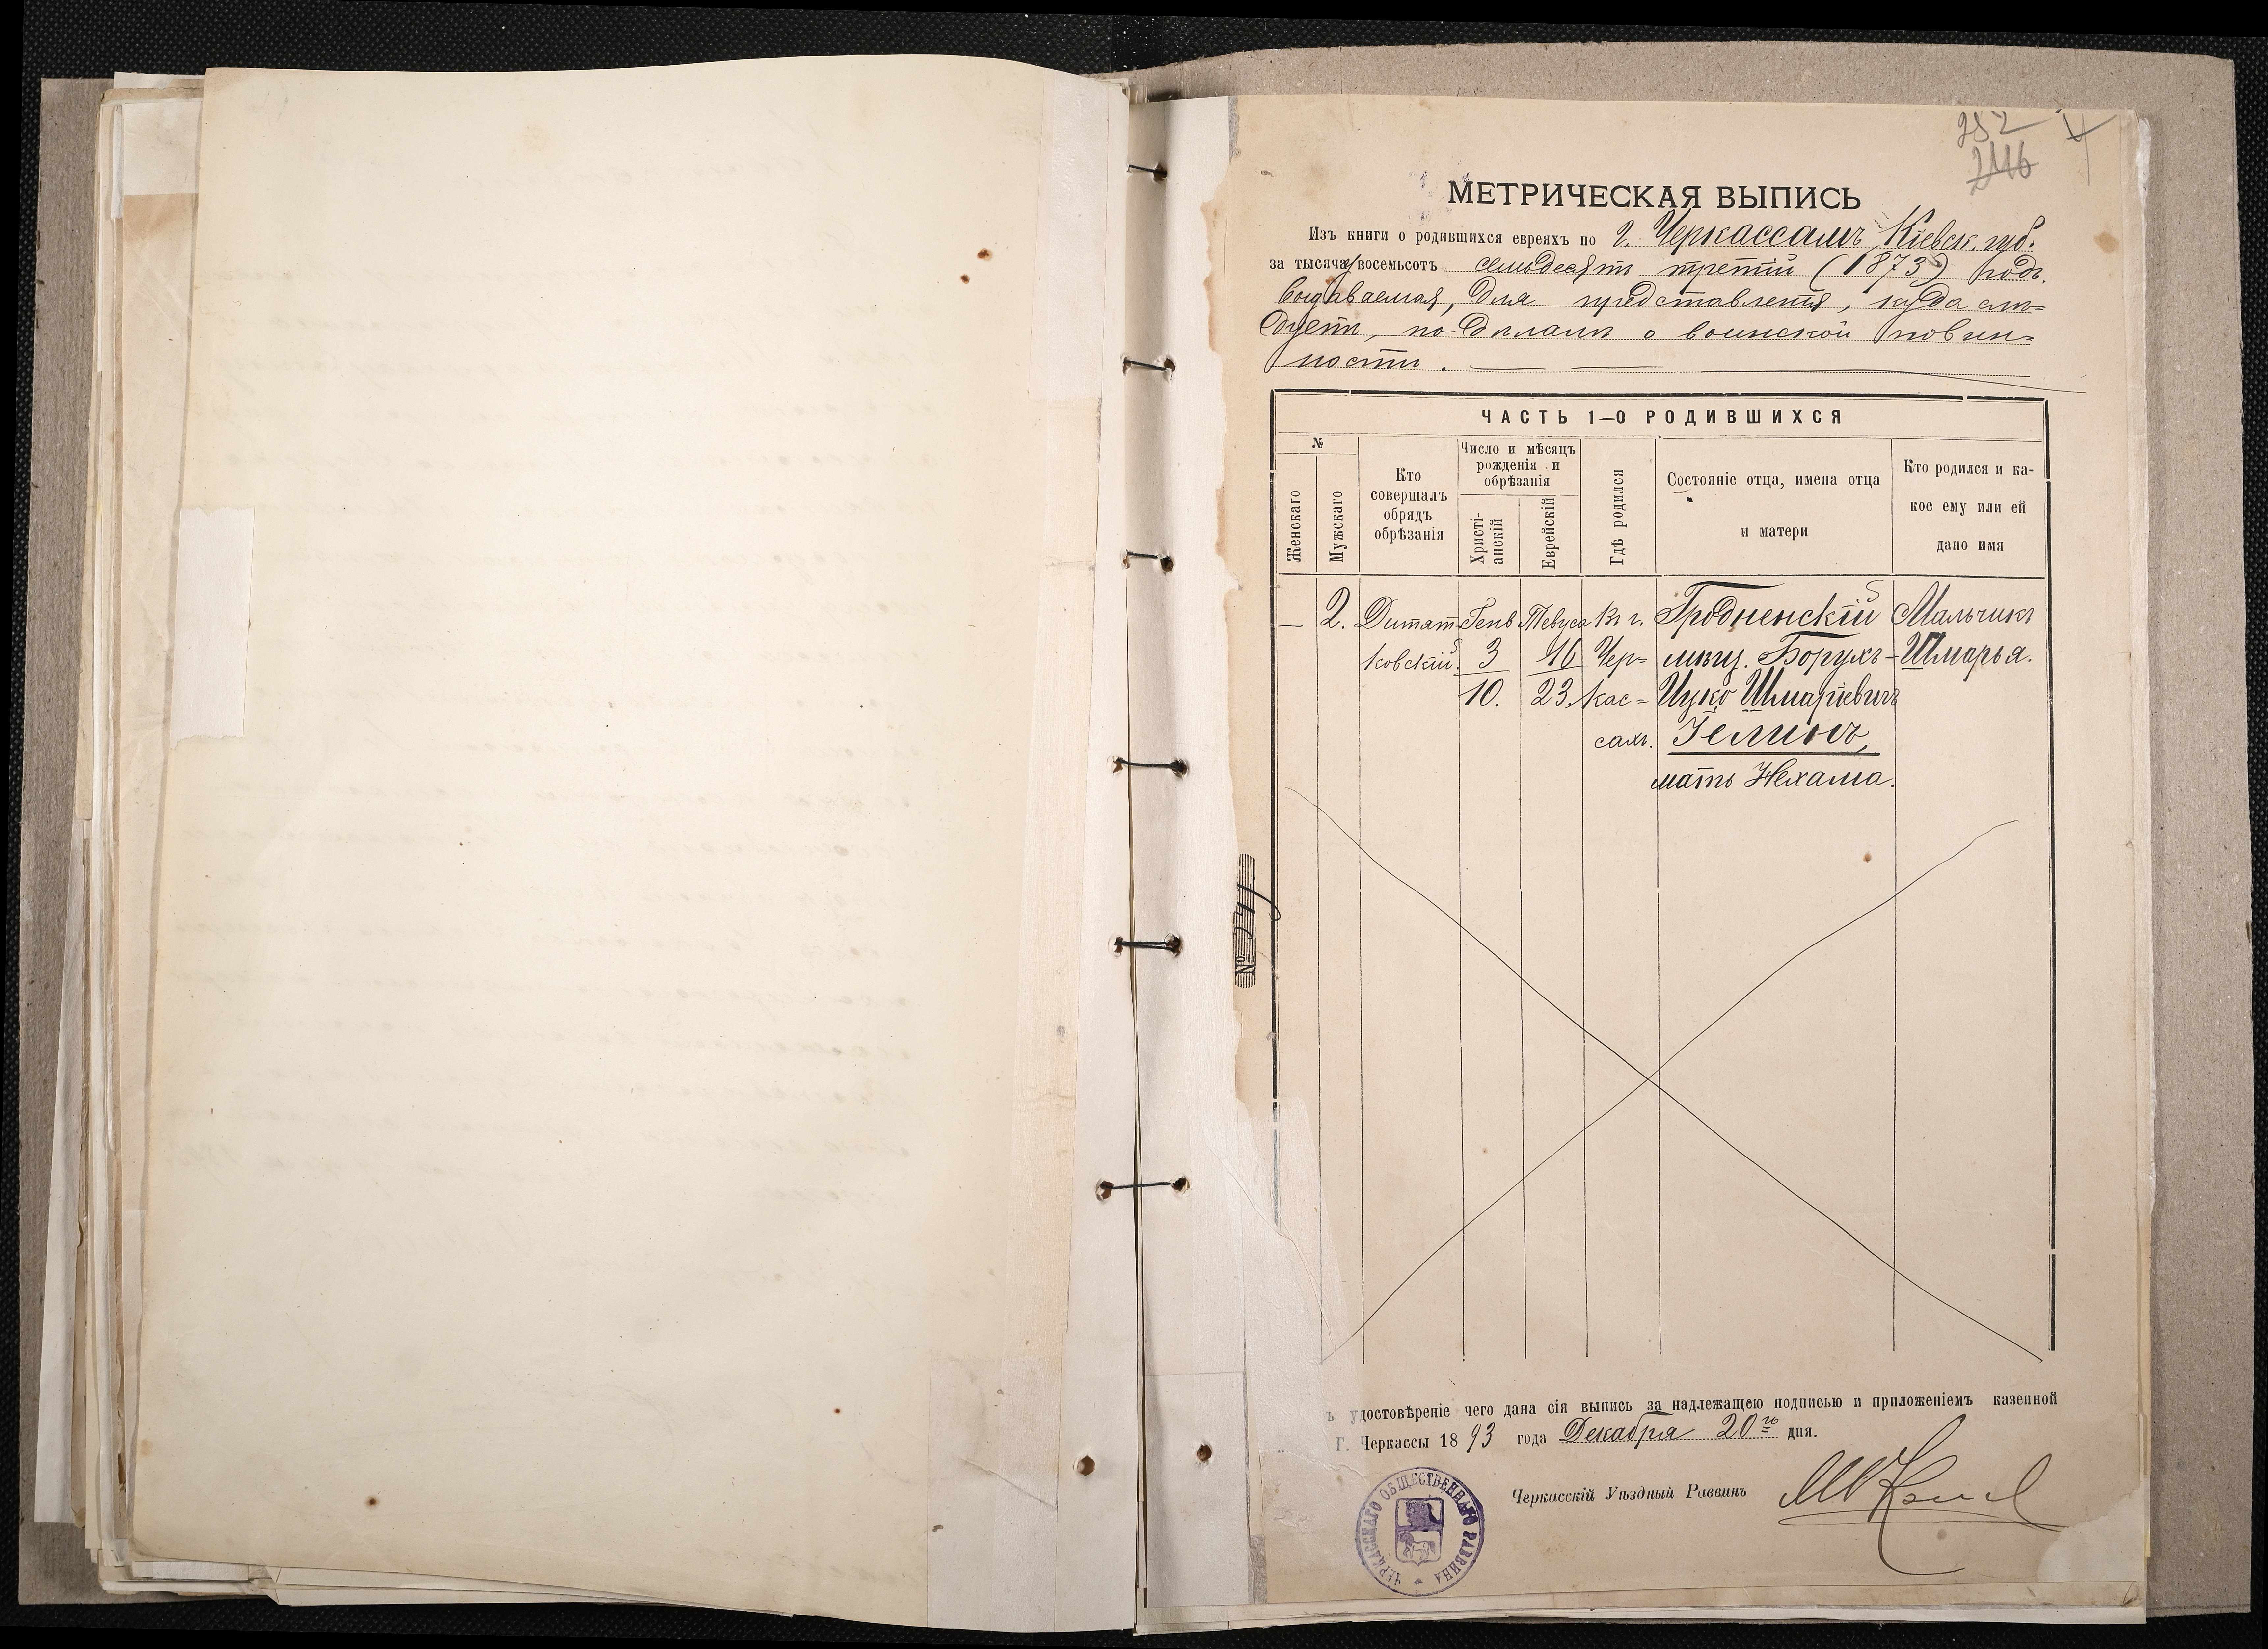 252
246
МЕТРИЧЕСКАЯ ВЫПИСЬ
Изъ книги о родившихся евреяхъ по г. Черкассамъ, Кіевск. губ.
за тысяча восемьсотъ семьдесятъ третій (1873) годъ.
выдаваемая, для представленія, куда слѣ=
дуетъ, по дѣламъ о воинской повин=
ности.
ЧАСТЬ 1–О РОДИВШИХСЯ
№
Женскаго
Мужскаго
Кто совершалъ обрядъ обрѣзанія
Число и мѣсяцъ рожденія и обрѣзанія
Христі-анскій
Еврейскій
Гдѣ родился
Состояніе отца, имена отца и матери
Кто родился и ка-кое ему или ей дано имя
— 2. Дитят Генв Тевуса Въ г. Гродненскій Мальчикъ
ковскій. 3 16 Чер= мѣщ. Борухъ- Шмарья.
10. 23. кас= Ицко Шмаріевичъ
сахъ. Гелинъ,
мать Нехама.
№
удостовѣреніе чего дана сія выпись за надлежащею подписью и приложеніемъ казенной
Г. Черкассы 1893 года Декабря 20го дня.
Черкасскій Уѣздный Раввинъ
ЧЕРКАССКАГО ОБЩЕСТВЕННАГО РАВВИНА